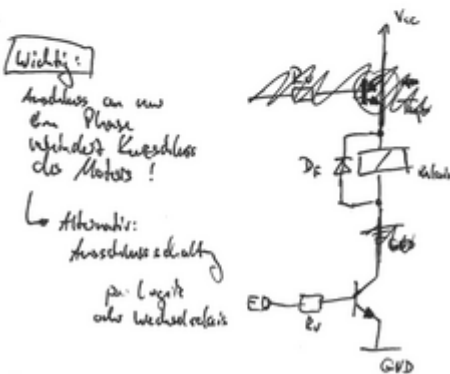 Wichtig:
Anschluss an nur
ein Phase
verhindert Kurzschluss
des Motors !
Alternativ:
Ausschlussschaltg
per Logik
oder Wechselrelais
Vcc
DF
Relais
ED
Rv
GND